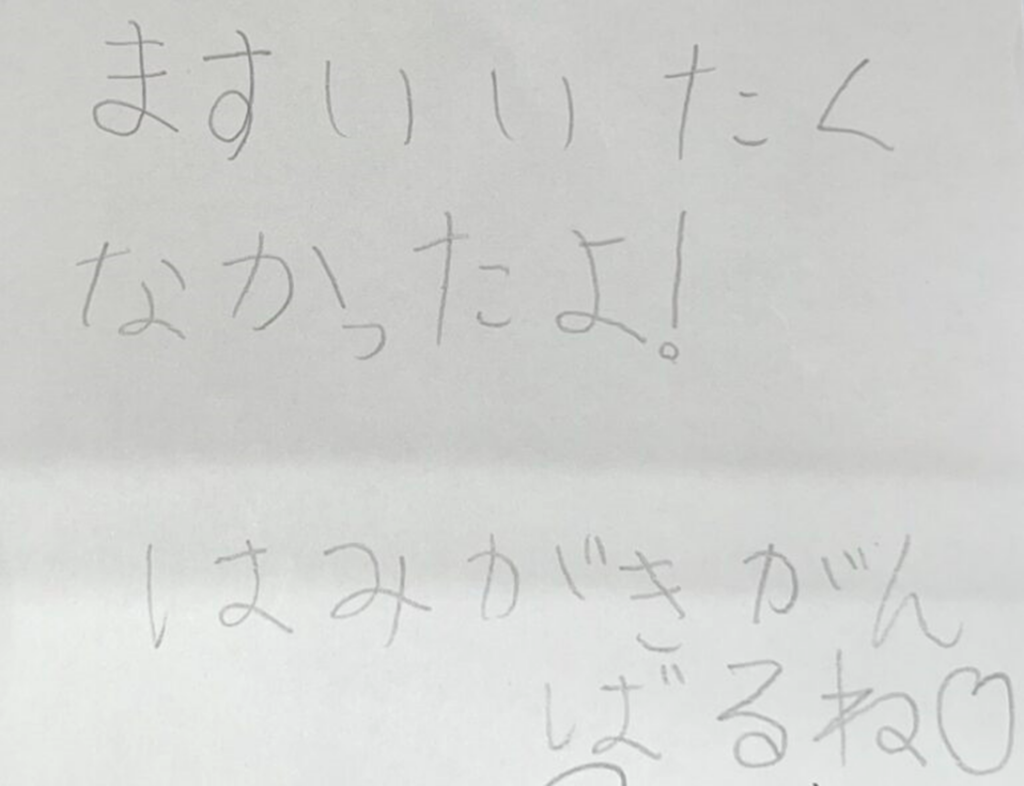 ますいいたく
なかったよ!
はみがきがん
ばるね♡